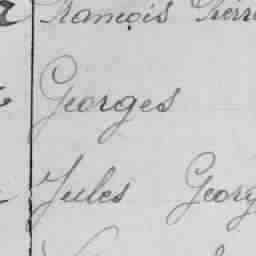 François Pierre
Georges
Jules Georg